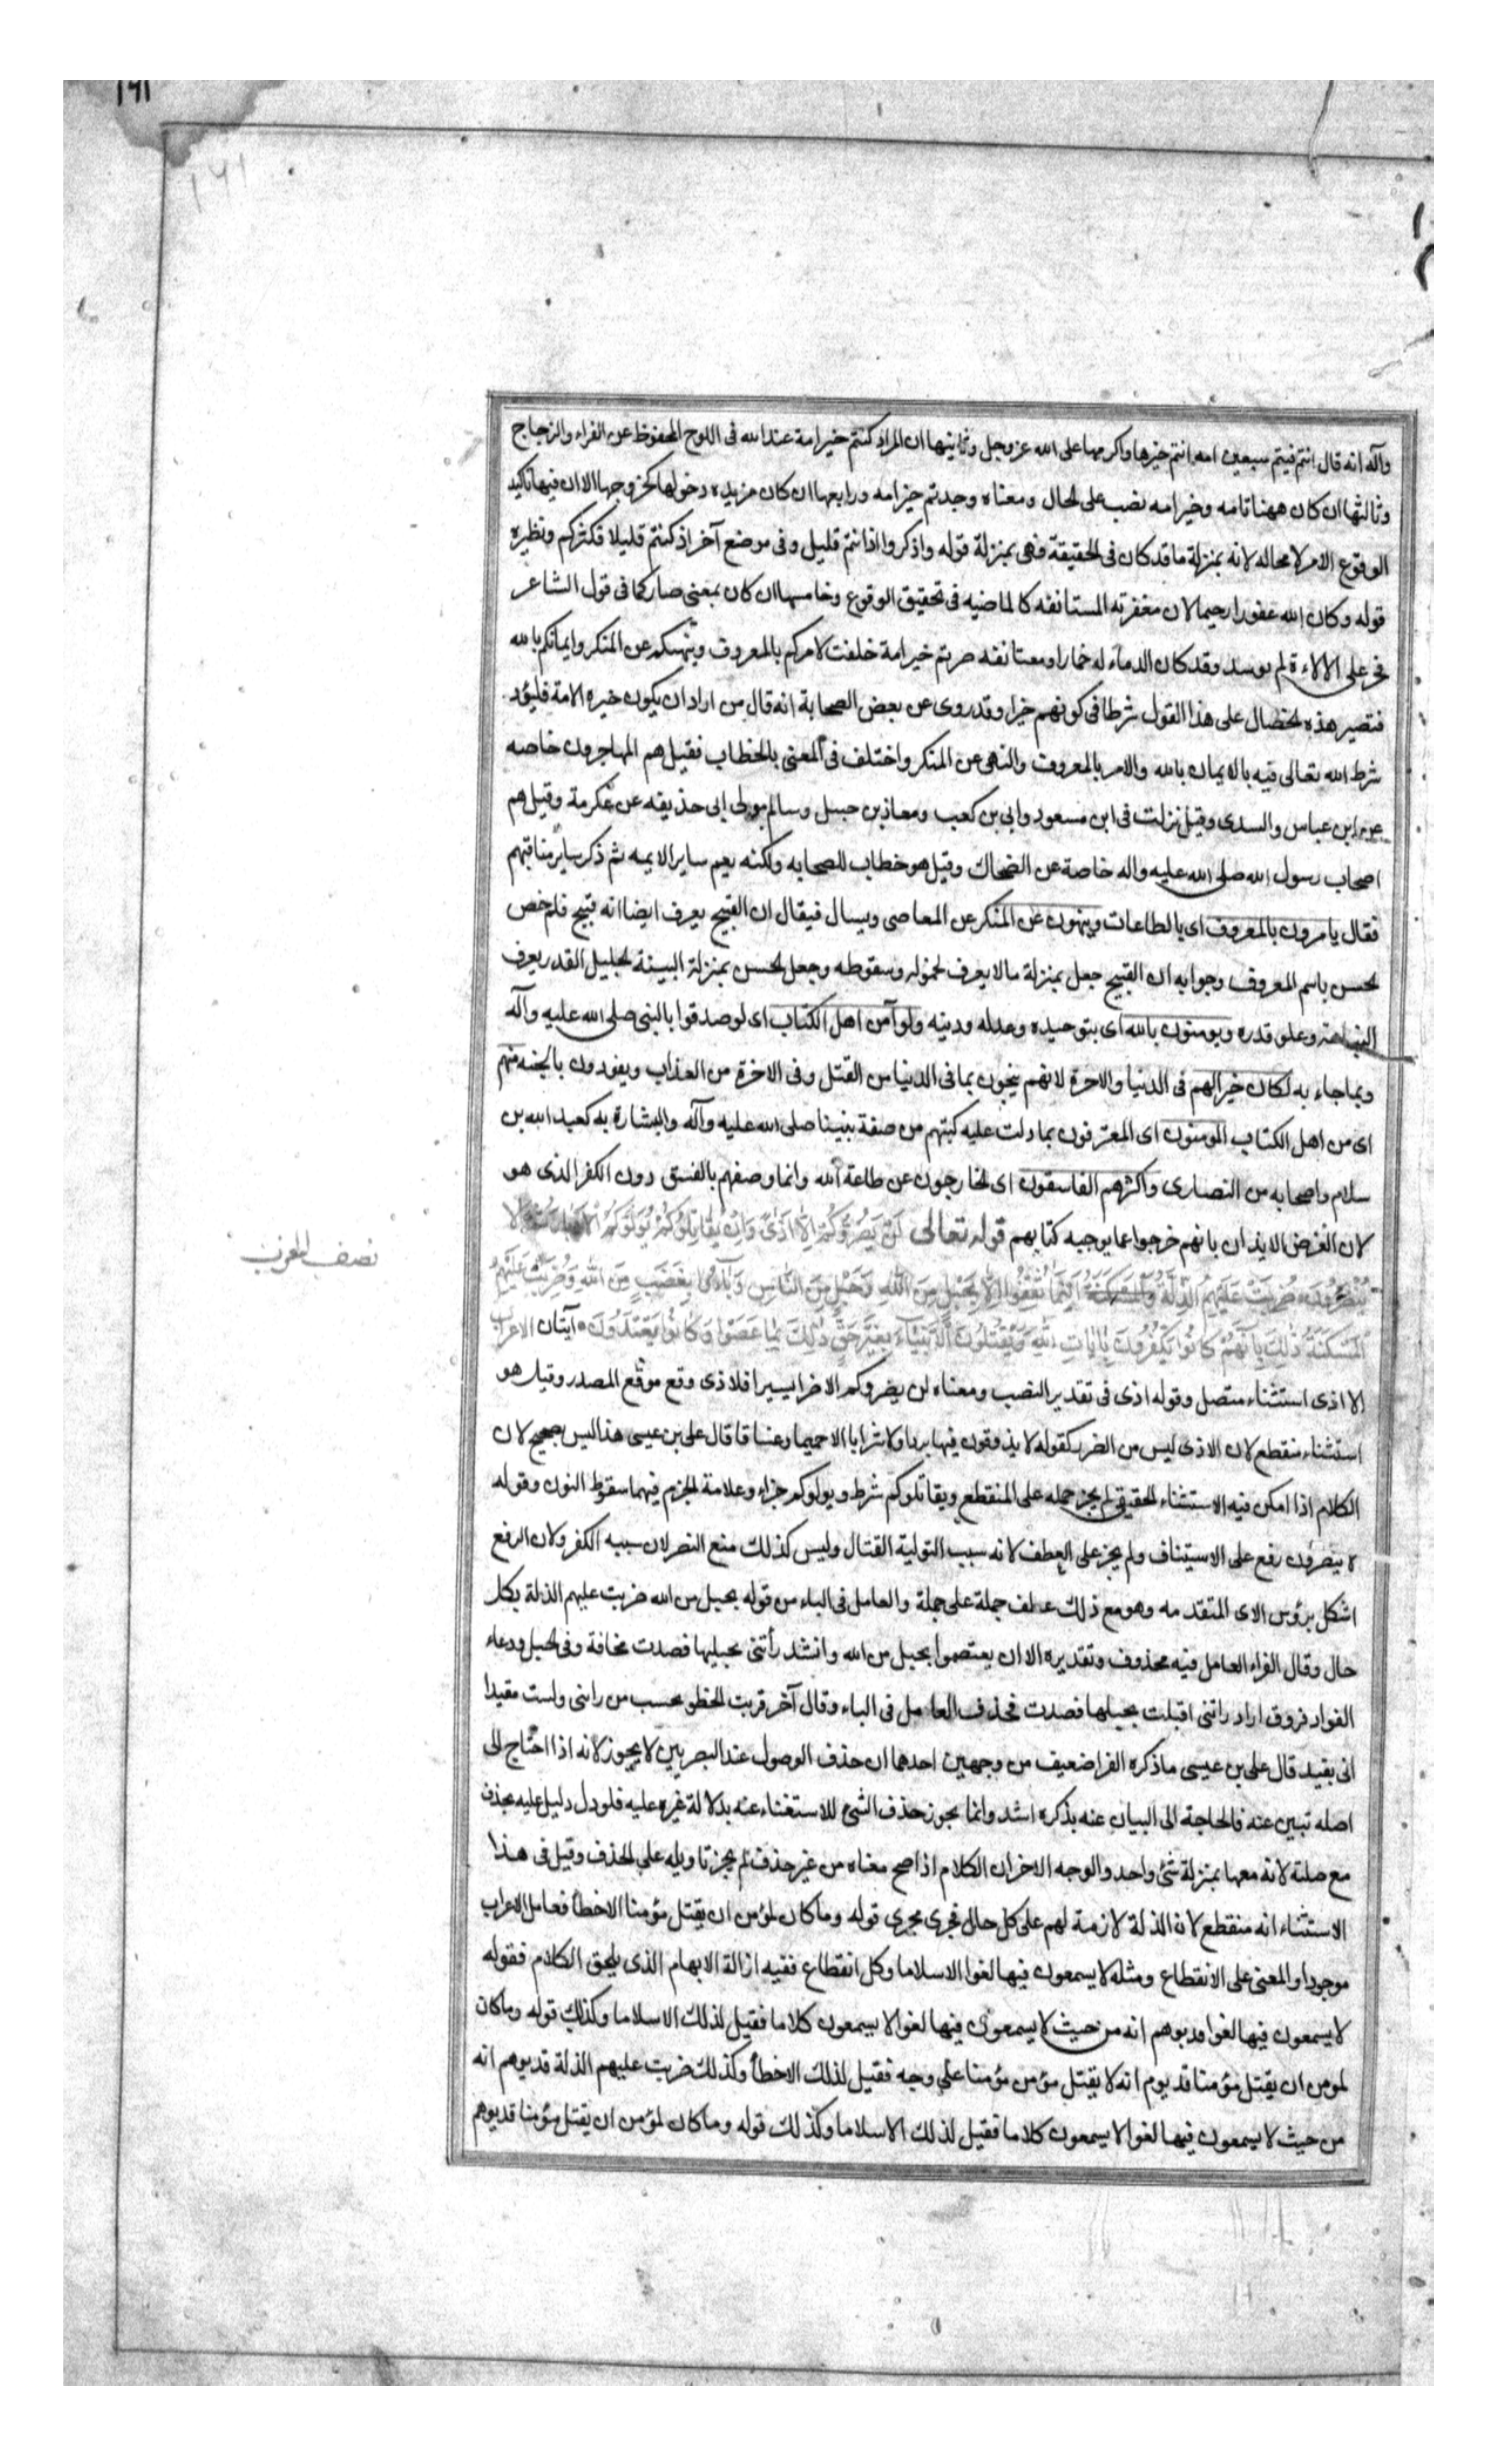 ١٦١
١٦١
وآله انه قال انتم فيتم سبعين امه انتم خيرها واكرمها على الله عز وجل وثانيها ان المراد كنتم خير امة عند الله فى اللوح المحفوظ عن الفراء والزجاج
وثالثها ان كان ههنا تامه وخير امه نصب على الحال ومعناه وجدتم خير امه ورابعها ان كان مزيده دخولها كخروجها الا ان فيها تاكيد
الوقوع الامر لا محاله لانه بمنزلة ما قد كان فى الحقيقة فهى بمنزلة قوله واذكروا اذ انتم قليل وفى موضع آخر اذ كنتم قليلا فكثركم ونظيره
قوله وكان الله غفورا رحيما لان مغفرته المستانفه كالماضيه فى تحقيق الوقوع وخامسها ان كان بمعنى صار كما فى قول الشاعر
فخر على الالاءة لم يوسد وقد كان الدماء له خمارا ومعناه صرتم خير امة خلقت لامركم بالمعروف ونهيكم عن المنكر وايمانكم بالله
فتصير هذه الخصال على هذا القول شرطا فى كونهم خيرا وقد روى عن بعض الصحابة انه قال من اراد ان يكون خير هذه الامة فليؤد
شرط الله تعالى فيه بالايمان بالله والامر بالمعروف والنهى عن المنكر واختلف فى المعنى بالخطاب فقيل هم المهاجرون خاصه
عن ابن عباس والسدى وقيل نزلت فى ابن مسعود وابى بن كعب ومعاذ بن جبل وسالم مولى ابى حذيفه عن عكرمة وقيل هم
اصحاب رسول الله صلى الله عليه واله خاصة عن الضحاك وقيل هو خطاب للصحابه ولكنه يعم ساير الايمه ثم ذكر ساير مناقبهم
فقال يامرون بالمعروف اى بالطاعات وينهون عن المنكر عن المعاصى ويسال فيقال ان القبيح يعرف ايضا انه قبيح فلم خص
الحسن باسم المعروف وجوابه ان القبيح جعل بمنزلة ما لا يعرف لخموله وسقوطه وجعل الحسن بمنزلة البينة لجليل القدر يعرف
النباهته وعلو قدره ويومنون بالله اى بتوحيده وعدله ودينه ولو آمن اهل الكتاب اى لو صدقوا بالنبى صلى الله عليه وآله
وبما جاء به لكان خيرا لهم فى الدنيا والاخرة لانهم ينجون بما فى الدنيا من القتل وفى الاخرة من العذاب ويفوزون بالجنه منهم
اى من اهل الكتاب المومنون اى المعترفون بما دلت عليه كتبهم من صفة نبينا صلى الله عليه وآله والبشارة به كعبد الله بن
سلام واصحابه من النصارى واكثرهم الفاسقون اى الخارجون عن طاعة الله وانما وصفهم بالفسق دون الكفر الذى هو
لان الغرض الايذان بانهم خرجوا عما يوجبه كتابهم قوله تعالى لَنْ يَضُرُّوكُمْ اِلَّا اَذًى وَاِنْ يُقَاتِلُوكُمْ يُوَلُّوكُمُ الْاَدْبَارَ ثُمَّ لَا
يُنْصَرُونَ ضُرِبَتْ عَلَيْهِمُ الذِّلَّةُ وَالْمَسْكَنَةُ اَيْنَمَا ثُقِفُوا اِلَّا بِحَبْلٍ مِنَ اللّٰهِ وَحَبْلٍ مِنَ النَّاسِ وَبَاءُوا بِغَضَبٍ مِنَ اللّٰهِ وَضُرِبَتْ عَلَيْهِمُ
الْمَسْكَنَةُ ذٰلِكَ بِاَنَّهُمْ كَانُوا يَكْفُرُونَ بِاٰيَاتِ اللّٰهِ وَيَقْتُلُونَ الْاَنْبِيَاءَ بِغَيْرِ حَقٍّ ذٰلِكَ بِمَا عَصَوْا وَكَانُوا يَعْتَدُونَ آيتان الاعراب
الا اذى استثناء متصل وقوله اذى فى تقدير النصب ومعناه لن يضروكم الا ضرا يسيرا فلاذى وقع موقع المصدر وقيل هو
استثناء منقطع لان الاذى ليس من الضرر كقوله لا يذوقون فيها بردا ولا شرابا الا حميما وغساقا قال على بن عيسى هذا ليس بصحيح لان
الكلام اذا امكن فيه الاستثناء الحقيقى لم يجز حمله على المنقطع ويقاتلوكم شرط ويولوكم جزاء وعلامة الجزم فيهما سقوط النون وقوله
لا ينصرون رفع على الاستيناف ولم يجز على العطف لانه سبب التولية القتال وليس كذلك منع النصر لان سببه الكفر ولان الرفع
اشكل برؤس الاى المتقدمه وهو مع ذلك عطف جملة على جملة والعامل فى الباء من قوله بحبل من الله ضربت عليهم الذلة بكل
حال وقال الفراء العامل فيه محذوف وتقديره الا ان يعتصموا بحبل من الله وانشد رأتنى بحبليها فصدت مخافة وفى الحبل روعاء
الفواد فروق اراد راتنى اقبلت بحبليها فصدت فحذف العامل فى الباء وقال آخر قريب الخطو يحسب من رانى ولست مقيدا
انى بقيد قال على بن عيسى ما ذكره الفرا ضعيف من وجهين احدهما ان حذف الموصول عند البصريين لا يجوز لانه اذا احتاج الى
اصله تبين عنه فالحاجة الى البيان عنه بذكره اشد وانما يجوز حذف الشئ للاستغناء عنه بدلالة غيره عليه فلو دل دليل عليه بحذف
مع صلته لانه معها بمنزلة شئ واحد والوجه الاخر ان الكلام اذا صح معناه من غير حذف لم يجز تاويله على الحذف وقيل فى هذا
الاستثناء انه منقطع لان الذلة لازمة لهم على كل حال فجرى مجرى قوله وما كان لمؤمن ان يقتل مؤمنا الا خطأ فعامل الاعراب
موجودا والمعنى على الانقطاع ومثله لا يسمعون فيها لغوا الا سلاما وكل انقطاع ففيه ازالة الابهام الذى يلحق الكلام فقوله
لا يسمعون فيها لغوا قد يوهم انه من حيث لا يسمعون فيها لغوا لا يسمعون كلاما فقيل لذلك الا سلاما وكذلك قوله وما كان
لمومن ان يقتل مؤمنا قد يوم انه لا يقتل مؤمن مؤمنا على وجه فقيل لذلك الا خطأ وكذلك ضربت عليهم الذلة قد يوهم انه
من حيث لا يسمعون فيها لغوا لا يسمعون كلاما فقيل لذلك الا سلاما وكذلك قوله وما كان لمؤمن ان يقتل مؤمنا قد يوهم
نصف الحزب